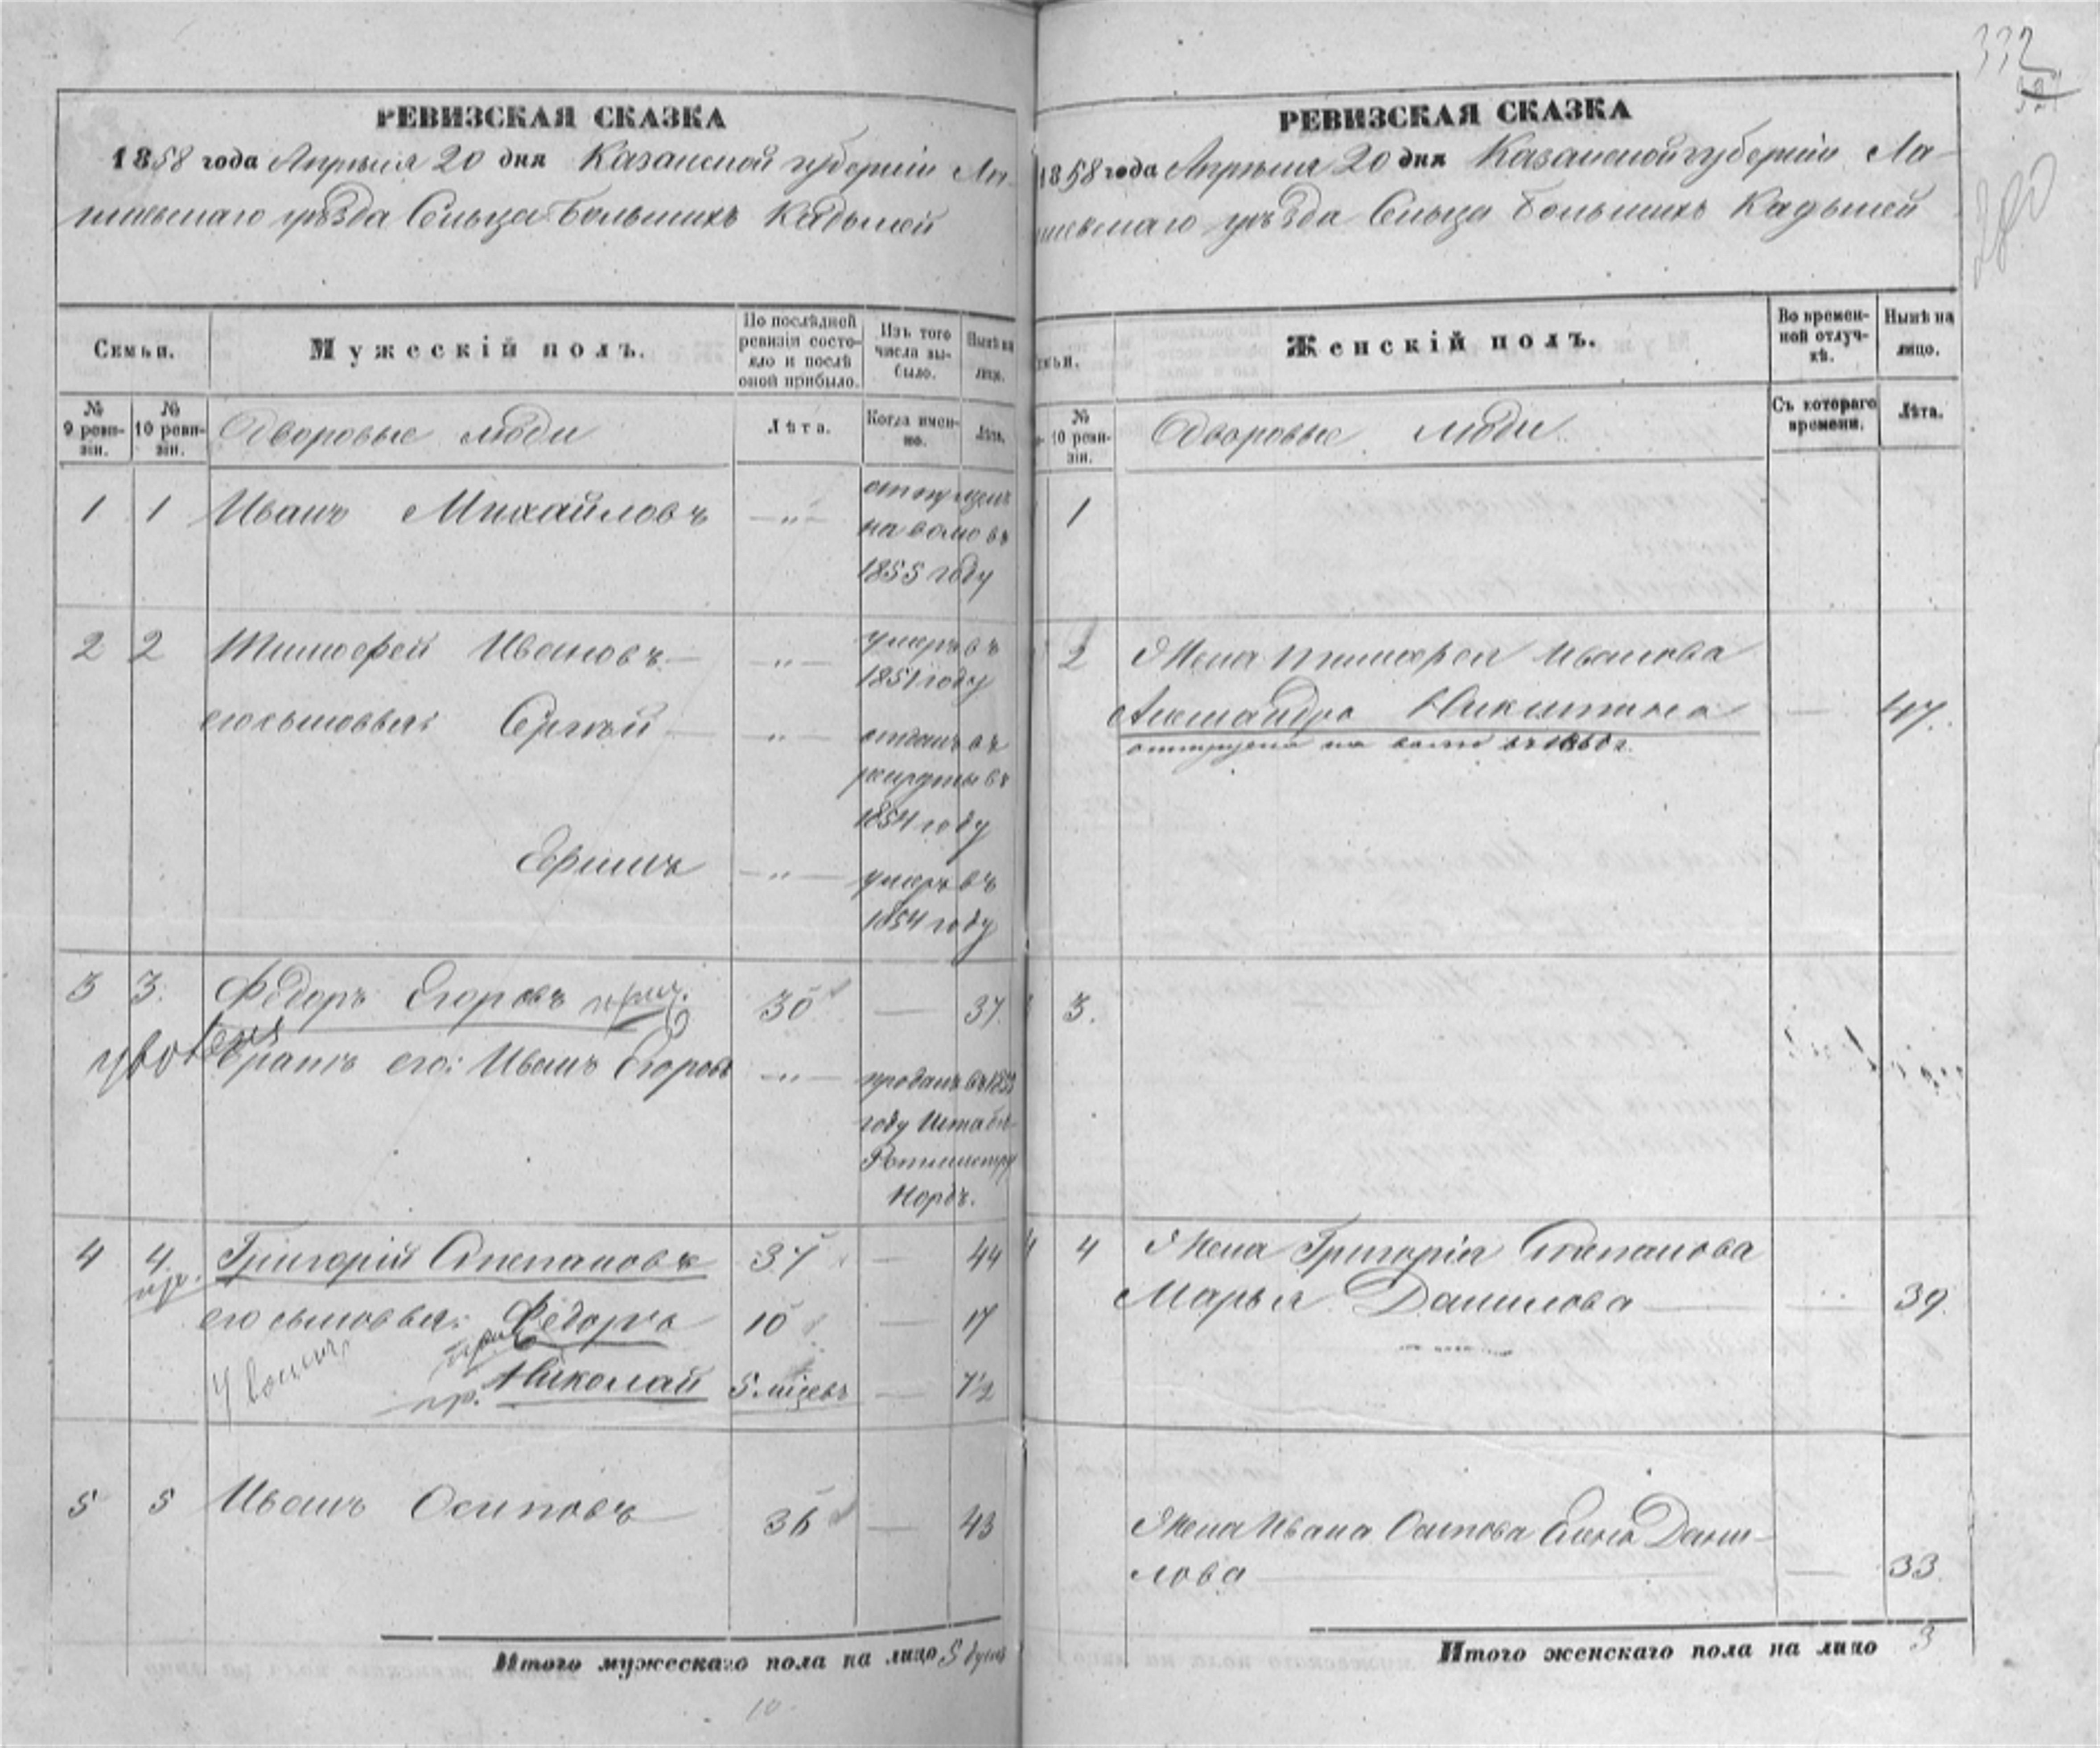 332
РЕВИЗСКАЯ СКАЗКА
1858 года Апрѣля 20 дня Казанской губерніи Ла-
ишевскаго уѣзда Сельца Большихъ Кадышей
Семьи.
Мужескій полъ.
По послѣдней ревизіи состо-
яло и послѣ оной прибыло.
Изъ того числа вы-
было.
Нынѣ на лицо.
№ 9 реви-
зіи.
№ 10 реви-
зіи.
Дворовые люди
Лѣта.
Когда имен-
но.
Лѣта.
1 1 Иванъ Михайловъ — „ — отпущенъ
на волю въ
1855 году
2 2 Тимофей Ивановъ — „ — умеръ въ
1851 году
его сыновья: Сергѣй — „ — отданъ въ
рекруты въ
1854 году
Ефимъ — „ — умеръ въ
1854 году
3 3. Федоръ Егоровъ 30 — 37.
братъ его: Иванъ Егоровъ — „ — проданъ въ
году Штабъ-
Ротмистру
Нордъ.
4 4. Григорій Степановъ 37 — 44
пр.
его сыновья: Федоръ 10 — 17
пр. Николай 5 мѣсяцевъ — 7½
5 5 Иванъ Осиповъ 36 — 43
Итого мужескаго пола на лицо 5 душъ
10
РЕВИЗСКАЯ СКАЗКА
1858 года Апрѣля 20 дня Казанской губерніи Ла-
ишевскаго уѣзда Сельца Большихъ Кадышей
Женскій полъ.
Во времен-
ной отлуч-
кѣ.
Нынѣ на лицо.
№ 10 реви-
зіи.
Дворовые люди
Съ котораго времени.
Лѣта.
1
2 Жена Тимофея Иванова
Александра Никитина — 47.
отпущена на волю въ 1860 г.
3.
4 4 Жена Григорія Степанова
Марья Данилова — 39.
Жена Ивана Осипова Елена Дани-
лова — 33.
Итого женскаго пола на лицо 3